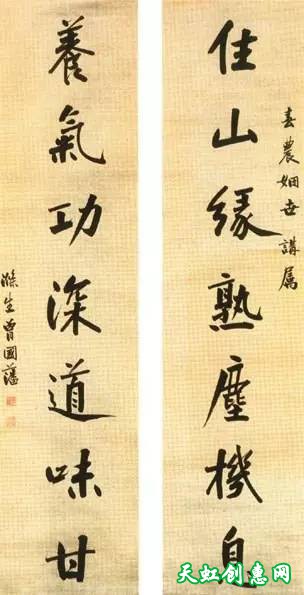 春農姻世講属
住山緣熟塵機息
養氣功深道味甘
滌生曾國藩
天虹创惠网